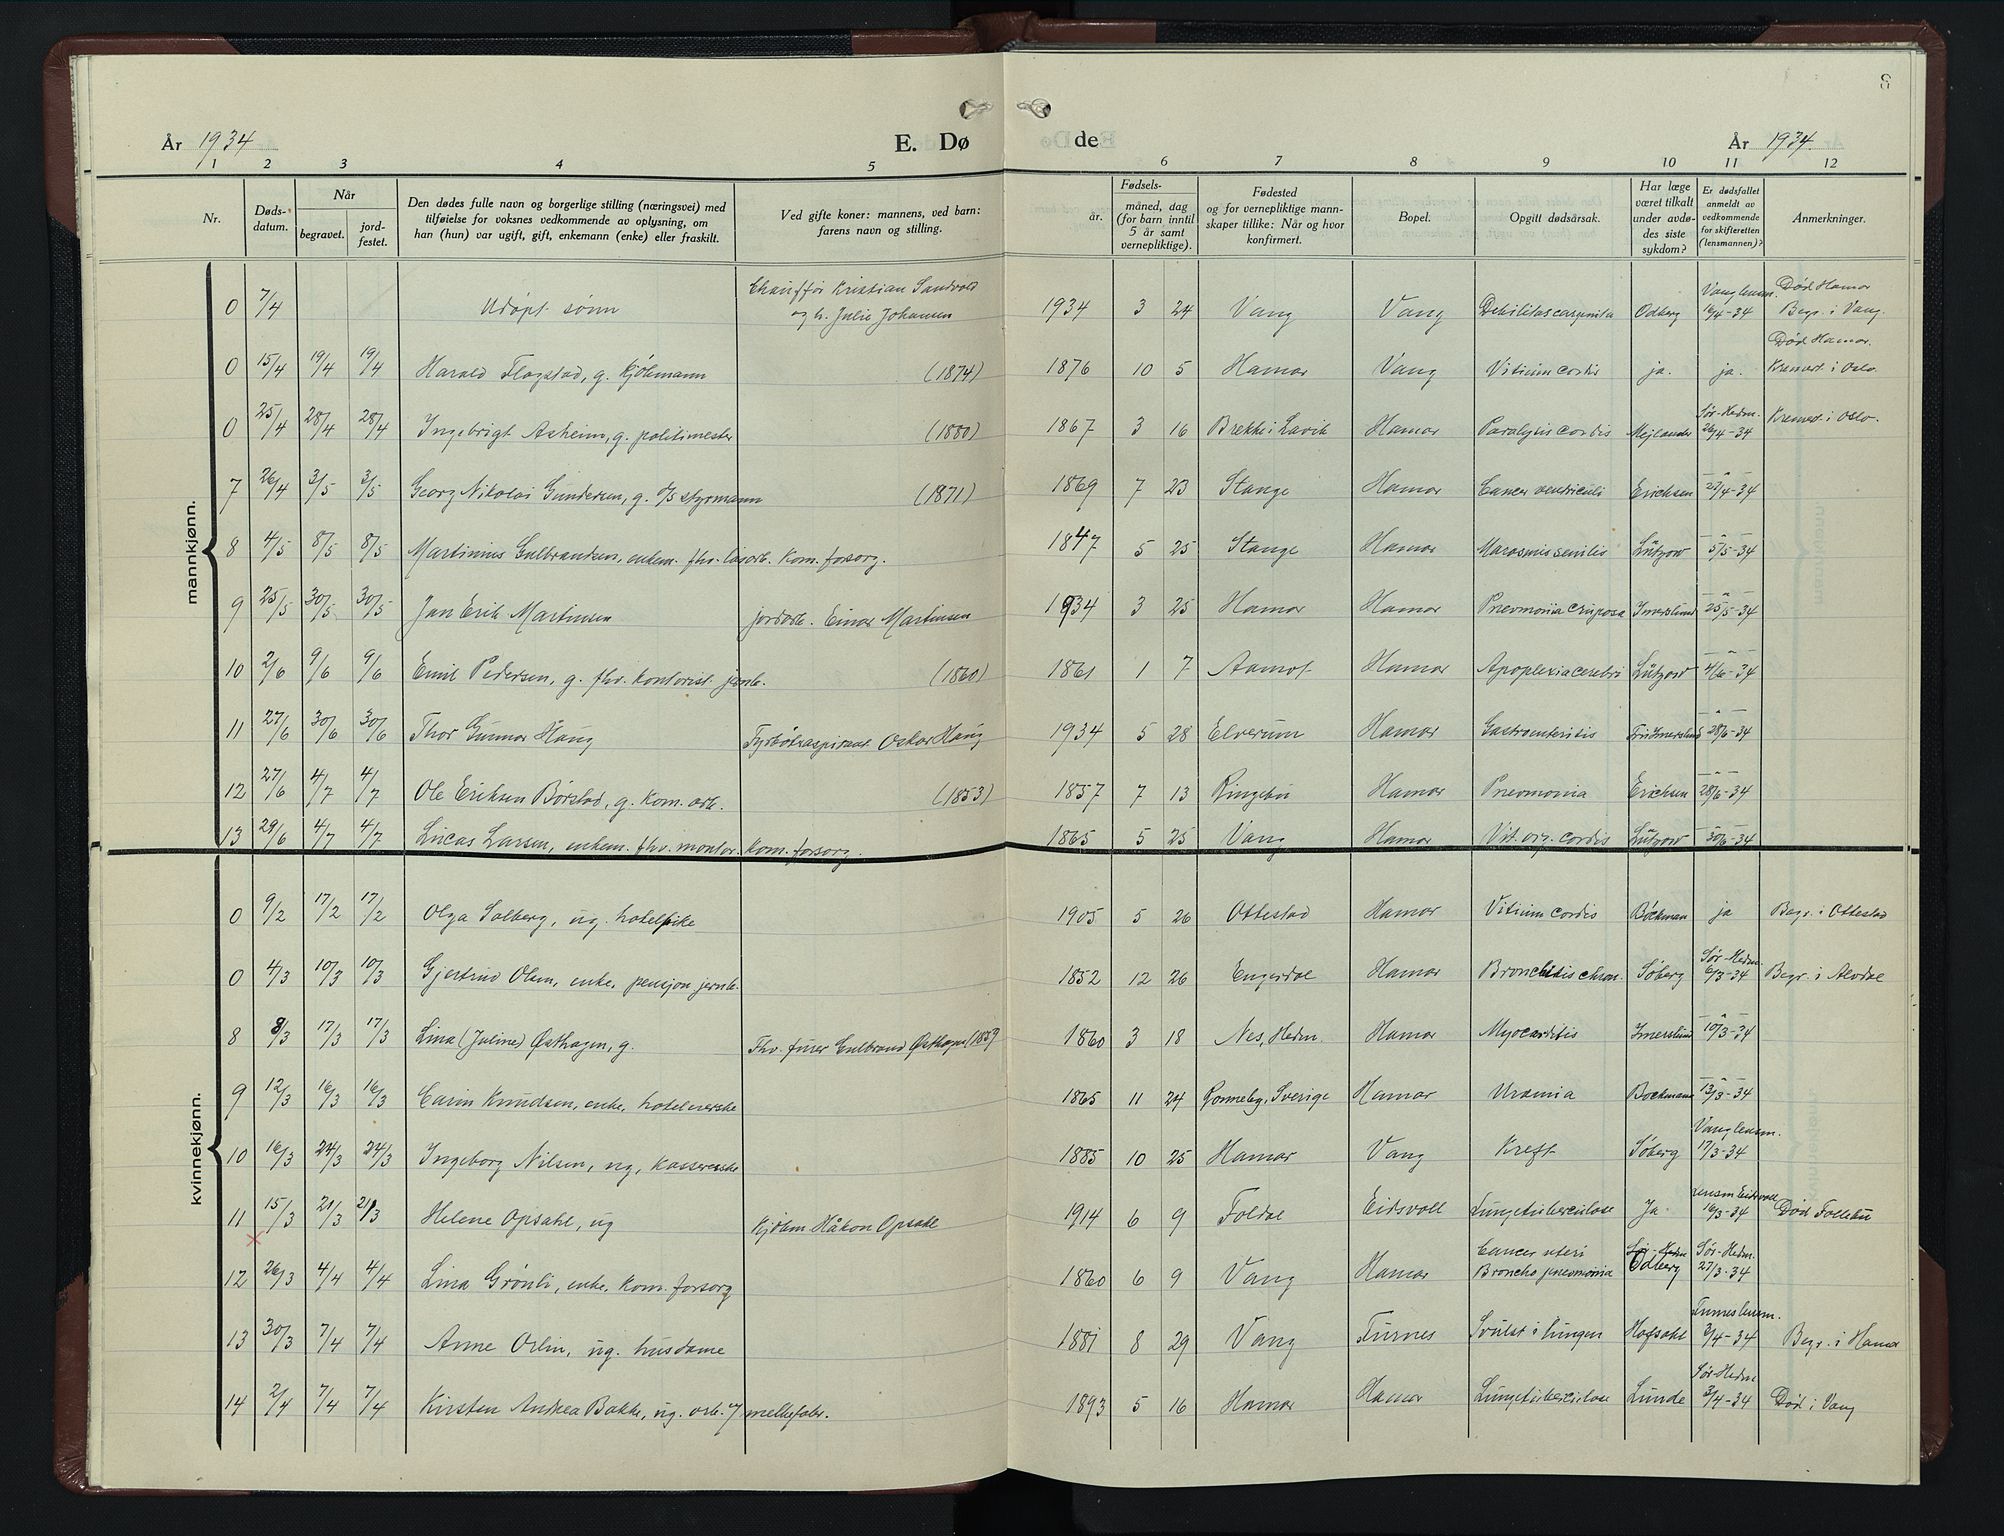 3
År 1934
E. Dø
de
År 1934.
1 2 3 4 5 6 7 8 9 10 11 12
Nr.
Døds-
datum.
Når
begravet.
jord-
festet.
Den dødes fulle navn og borgerlige stilling (næringsvei) med
tilføielse for voksnes vedkommende av oplysning, om
han (hun) var ugift, gift, enkemann (enke) eller fraskilt.
Ved gifte koner: mannens, ved barn:
farens navn og stilling.
Fødsels-
år.
måned, dag
(for barn inntil
5 år samt
vernepliktige).
Fødested
og for vernepliktige mann-
skaper tillike: Når og hvor
konfirmert.
Bopel.
Opgitt dødsårsak.
Har læge
været tilkalt
under avdø-
des siste
sykdom?
Er dødsfallet
anmeldt av
vedkommende
for skifteretten
(lensmannen)?
Anmerkninger.
mannkjønn.
Chauffør Kristian Sandvold Vang lensm. Død Hamar
0 7/4 Udøpt sønn og h. Julie Johansen 1934 3 24 Vang Vang Debilitas congenita Odberg 16/4-34 Begr. i Vang.
Død Hamar.
0 15/4 19/4 19/4 Harald Flagstad, g. kjøbmann (1874) 1876 10 5 Hamar Vang Vitium cordis ja. ja. Kremert. i Oslo.
Sør-Hedm.
0 25/4 28/4 28/4 Ingebrigt Aasheim, g. politimester (1880) 1867 3 16 Brekke i Lavik Hamar Paralysis cordis Mejlænder 26/4-34 Kremert. i Oslo.
7 26/4 3/5 3/5 Georg Nikolai Gundersen, g. d/s styrmann (1871) 1869 7 23 Stange Hamar Cancer ventriculi Erichsen —"— 27/4-34
8 4/5 8/5 8/5 Martinius Gulbrandsen, enkem. fhv. løsarb. kom. forsorg. 1847 5 25 Stange Hamar Marasmus senilis Lützow —"— 5/5-34
9 25/5 30/5 30/5 Jan Erik Martinsen jordarb. Einar Martinsen 1934 3 25 Hamar Hamar Pnevmonia cruposa Imerslund —"— 25/5-34
10 2/6 9/6 9/6 Emil Pedersen, g. fhv. kontorist jernb. (1860) 1861 1 7 Aamot Hamar Apoplexia cerebri Lützow —"— 4/6-34
11 27/6 30/6 30/6 Thor Gunnar Haug Fyrbøteraspirant Oskar Haug 1934 5 28 Elverum Hamar Gastroenteritis Fru Imerslund —"— 28/6-34
12 27/6 4/7 4/7 Ole Eriksen Børstad, g. kom. arb. (1853) 1857 7 13 Ringebu Hamar Pnevmonia Erichsen —"— 28/6-34
13 29/6 4/7 4/7 Lucas Larsen, enkem. fhv. montør. kom. forsorg. 1865 5 25 Vang Hamar Vit. org. cordis Lützow —"— 30/6-34
kvinnekjønn.
0 9/2 17/2 17/2 Olga Solberg, ug. hotelpike 1905 5 26 Ottestad Hamar Vitium cordis Bøckman ja Begr. i Ottestad
Sør-Hedm.
0 4/3 10/3 10/3 Gjertrud Olsen, enke, pensjon jernb. 1852 12 26 Engerdal Hamar Bronchitis chron. Søberg 6/3-34 Begr. i Alvdal
8 8/3 17/3 17/3 Lina (Juline) Østhagen, g. Fhv. furer Gulbrand Østhagen (1857) 1860 3 18 Nes, Hedm. Hamar Myocarditis Imerslund —"— 10/3-34
9 12/3 16/3 16/3 Carin Knudsen, enke, hotelvertske 1865 11 24 Ronneby, Sverige Hamar Uræmia Bøckmann —"— 13/3-34
Vang lensm.
10 16/3 24/3 24/3 Ingeborg Nilsen, ug, kassererske 1885 10 25 Hamar Vang Kreft Søberg 17/3-34
Lensm Eidsvoll
11 15/3 21/3 21/3 Helene Opsahl, ug Kjøbm Håkon Opsahl 1914 6 9 Foldal Eidsvoll Lungetuberculose Ja. 16/3-34 Død Follebu
Cancer uteri Sør-Hedm Sør-Hedm.
12 26/3 4/4 4/4 Lina Grønli, enke, kom. forsorg 1860 6 9 Vang Hamar Broncho pnevmonia Odberg 27/3-34
Furnes lensm.
13 30/3 7/4 7/4 Anne Orlin, ug. husdame 1881 8 29 Vang Furnes Svulst i lungen Hofsahl 3/4-34 Begr. i Hamar
Sør-Hedm
14 2/4 7/4 7/4 Kirsten Andrea Bakke, ug. arb. v/ melkefabr. 1893 5 16 Hamar Hamar Lungetuberculose Lunde 3/4-34 Død i Vang